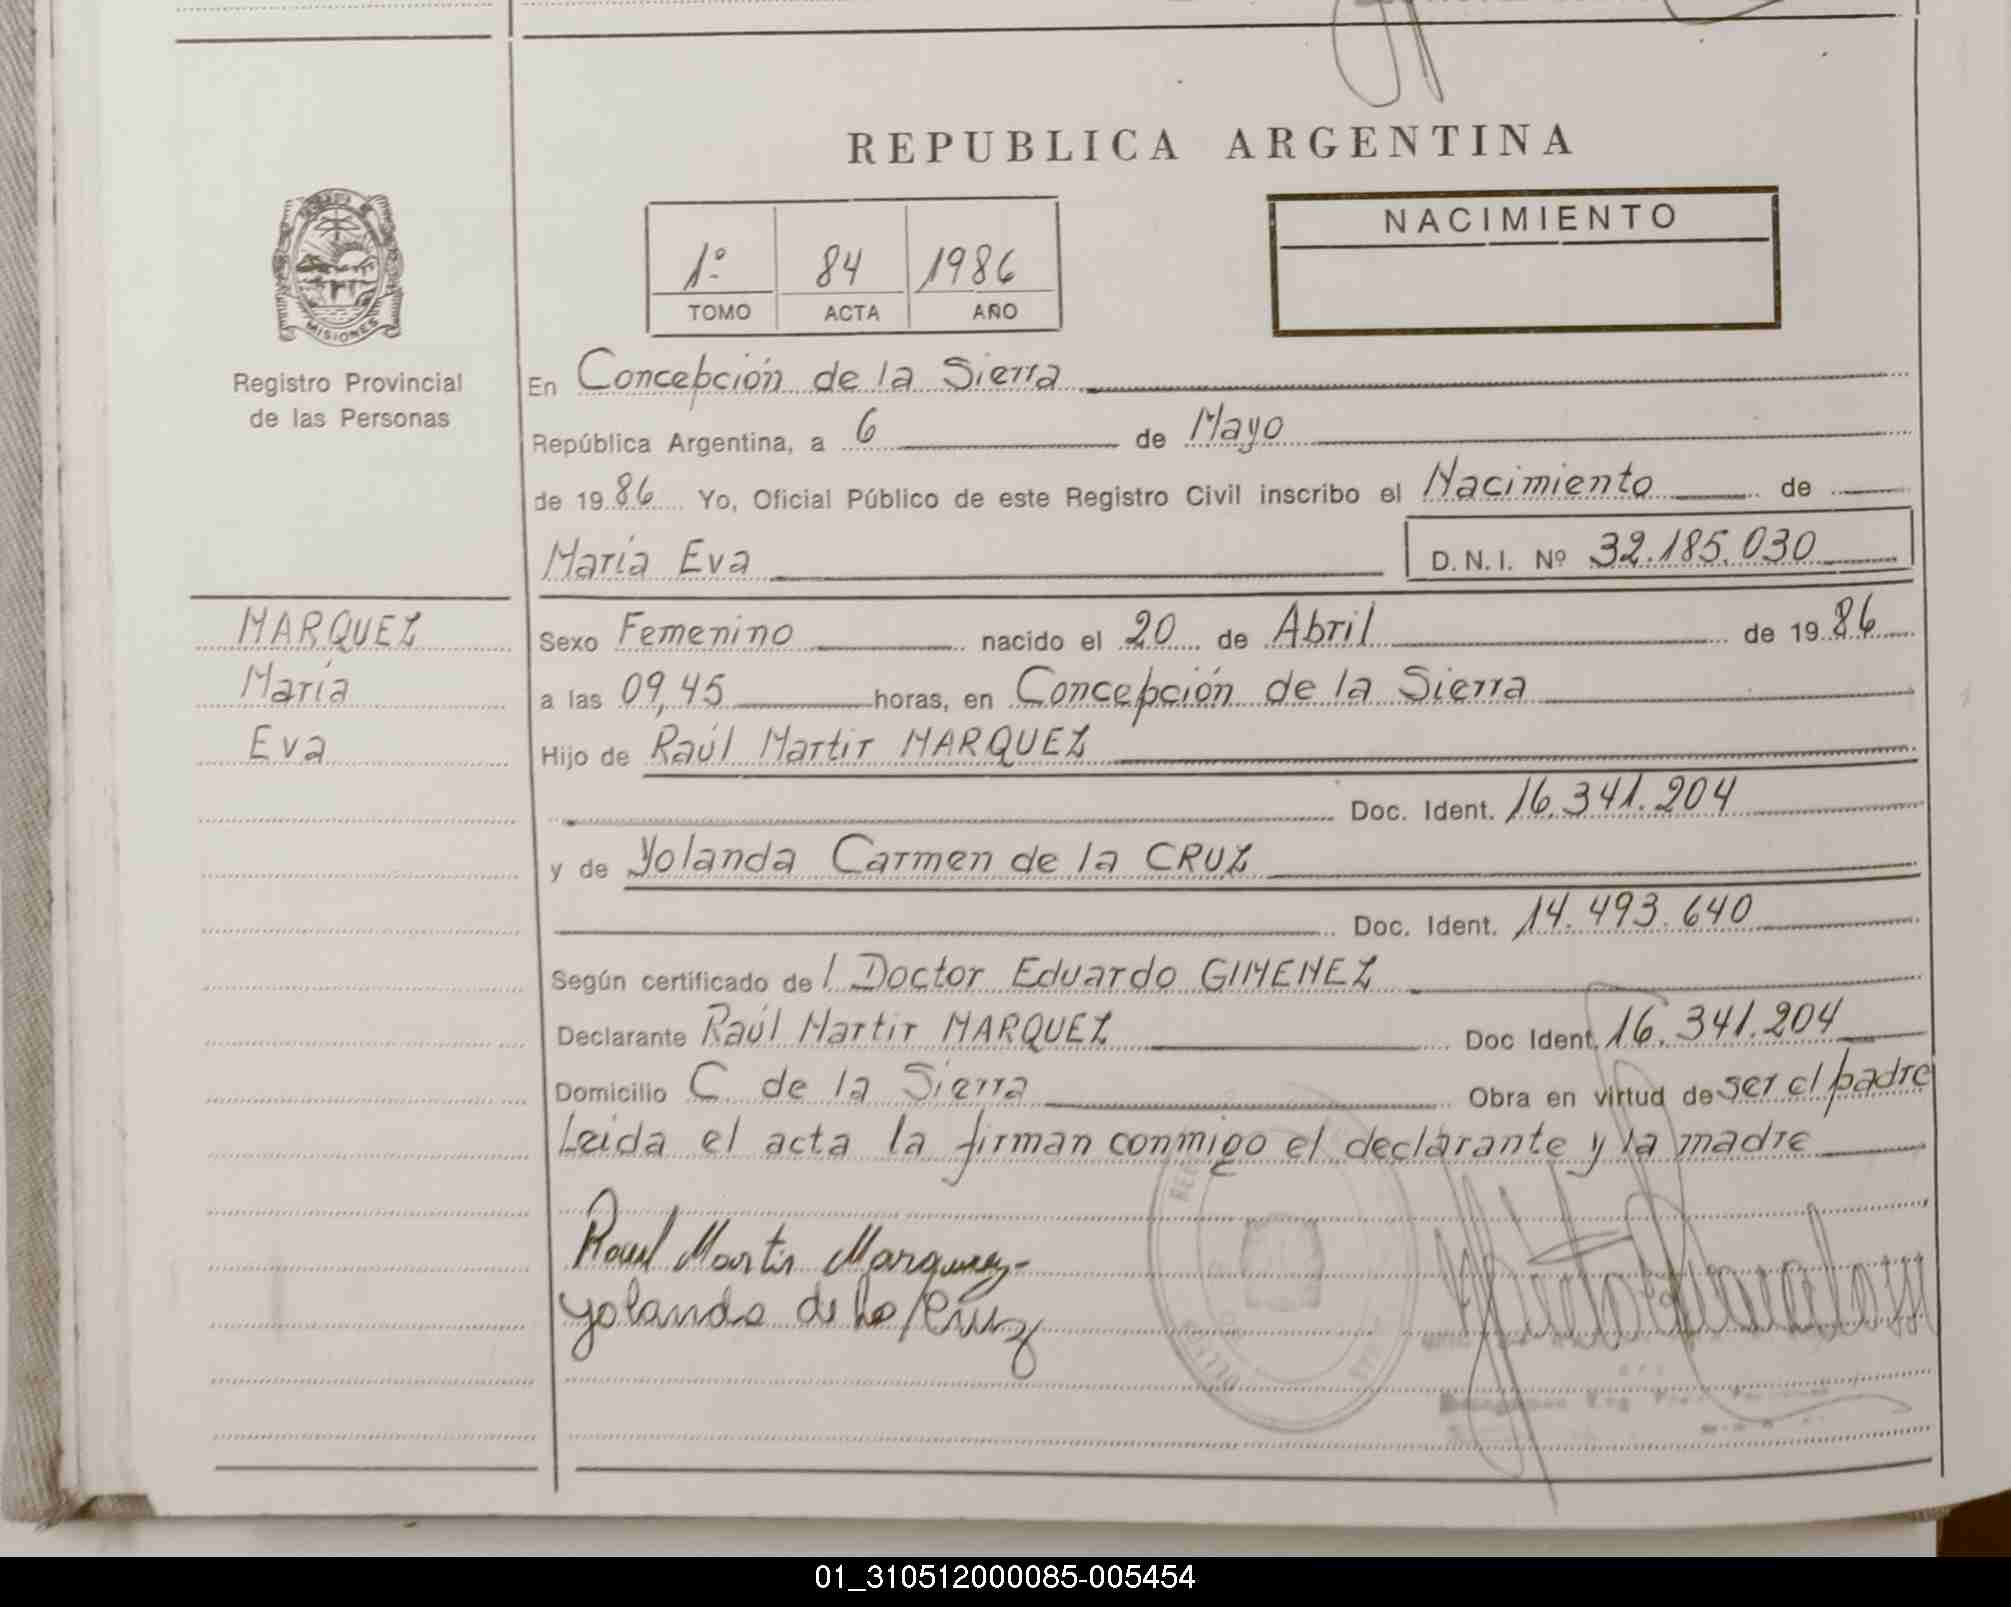 REPUBLICA ARGENTINA
NACIMIENTO
1º 84 1986
TOMO ACTA AÑO
MISIONES
Registro Provincial
de las Personas
En Concepción de la Sierra
República Argentina, a 6 de Mayo
de 1986 Yo, Oficial Público de este Registro Civil inscribo el Nacimiento de
María Eva D.N.I. Nº 32.185.030
MARQUEZ
María
Eva
Sexo Femenino nacido el 20 de Abril de 1986
a las 09,45 horas, en Concepción de la Sierra
Hijo de Raúl Martir MARQUEZ
Doc. Ident. 16.341.204
y de Yolanda Carmen de la CRUZ
Doc. Ident. 14.493.640
Según certificado del Doctor Eduardo GIMENEZ
Declarante Raúl Martir MARQUEZ Doc Ident. 16.341.204
Domicilio C. de la Sierra Obra en virtud de ser el padre
Leida el acta la firman conmigo el declarante y la madre
Raul Martir Marquez
Yolanda de la Cruz
01_310512000085-005454